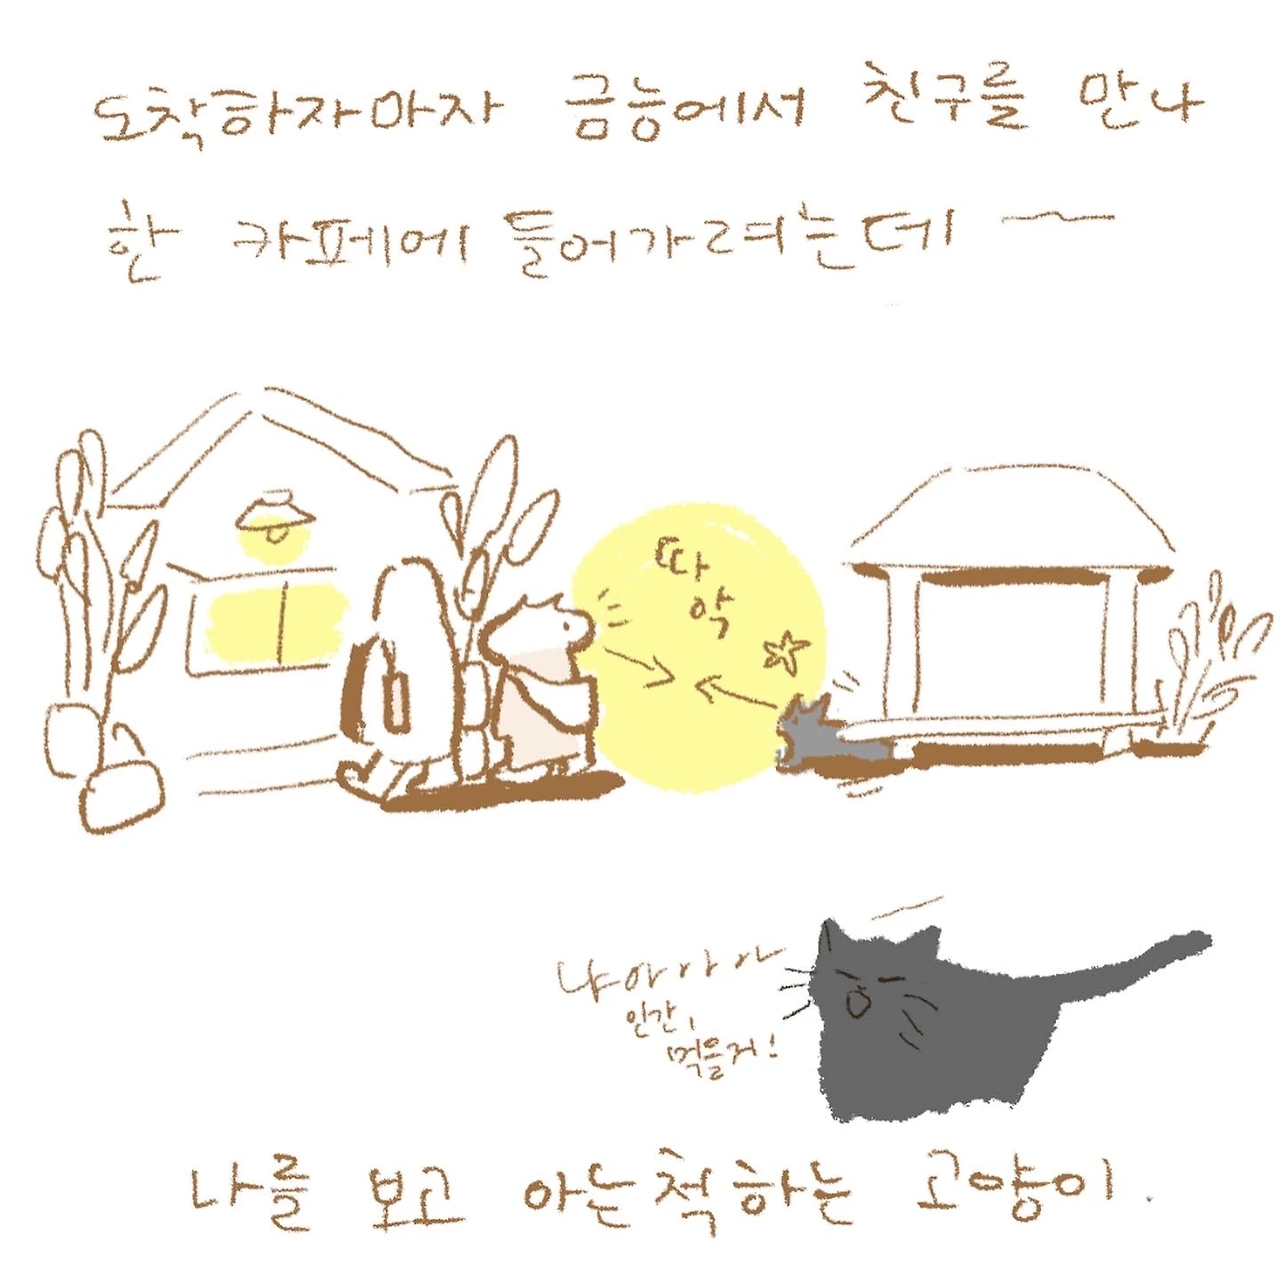 도착하자마자 금능에서 친구를 만나
한 카페에 들어가려는데 ~
따
악
냐아아아
인간,
먹을거!
나를 보고 아는척하는 고양이.